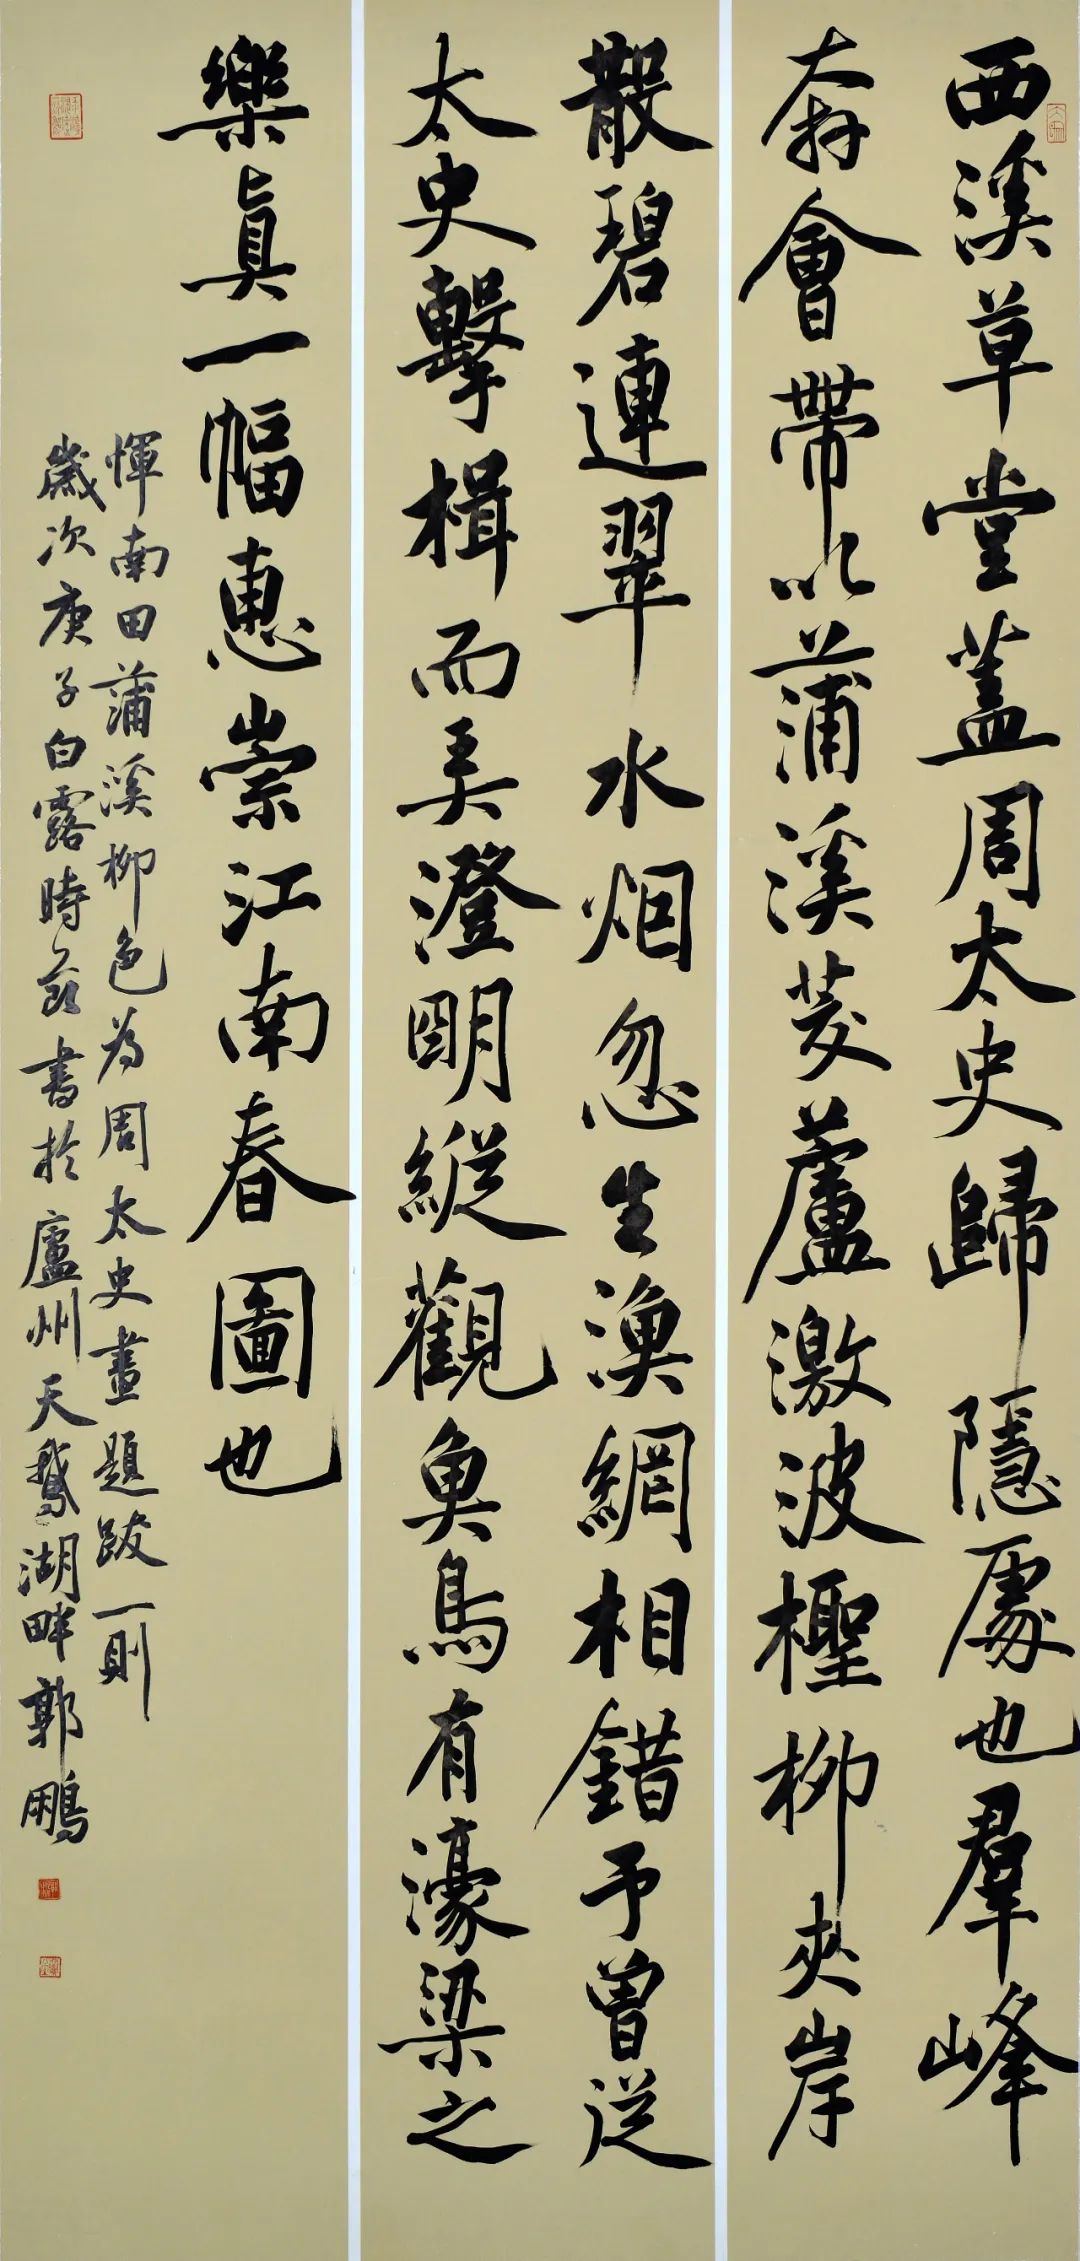 西溪草堂蓋周太史歸隱處也羣峰
奔會帶以蒲溪茭蘆激波檉柳夾岸
散碧連翠水烟忽生漁網相錯予曾從
太史擊楫而弄澄明縱觀魚鳥有濠梁之
樂真一幅惠崇江南春圖也
惲南田蒲溪柳色為周太史畫題跋一則
歲次庚子白露時節書於廬州天鵝湖畔郭鵬